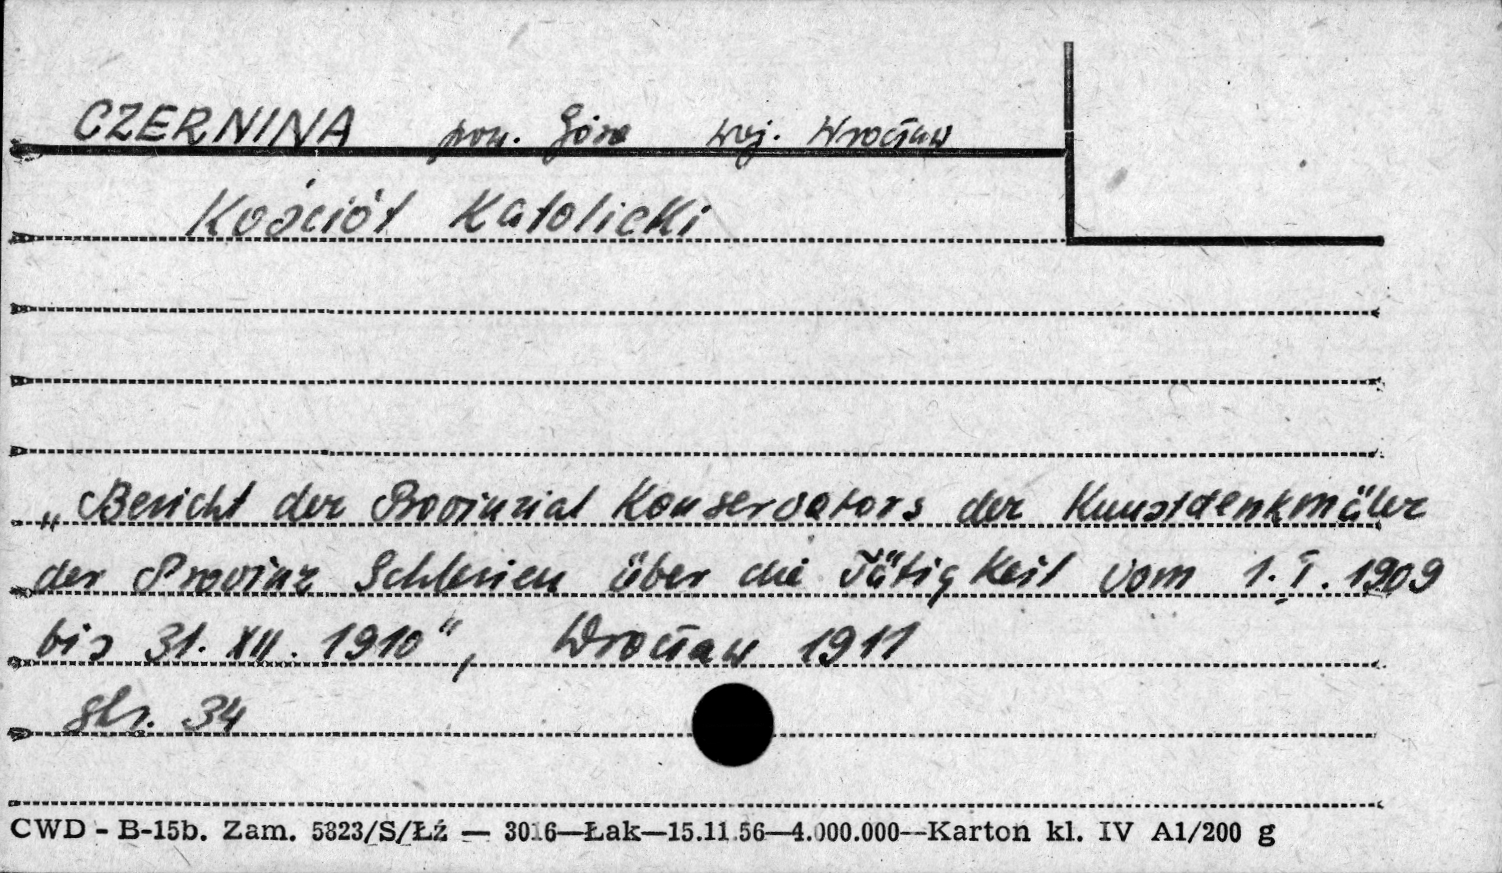 CZERNINA pow. Góra woj. Wrocław
Kościół Katolicki
„Bericht der Provinzial Konservators der Kunstdenkmäler
der Provinz Schlesien über die Tätigkeit vom 1.I.1909
bis 31.XII.1910", Wrocław 1911
str. 34
CWD - B-15b. Zam. 5823/S/Łź — 3016—Łak—15.11.56—4.000.000—Karton kl. IV A1/200 g